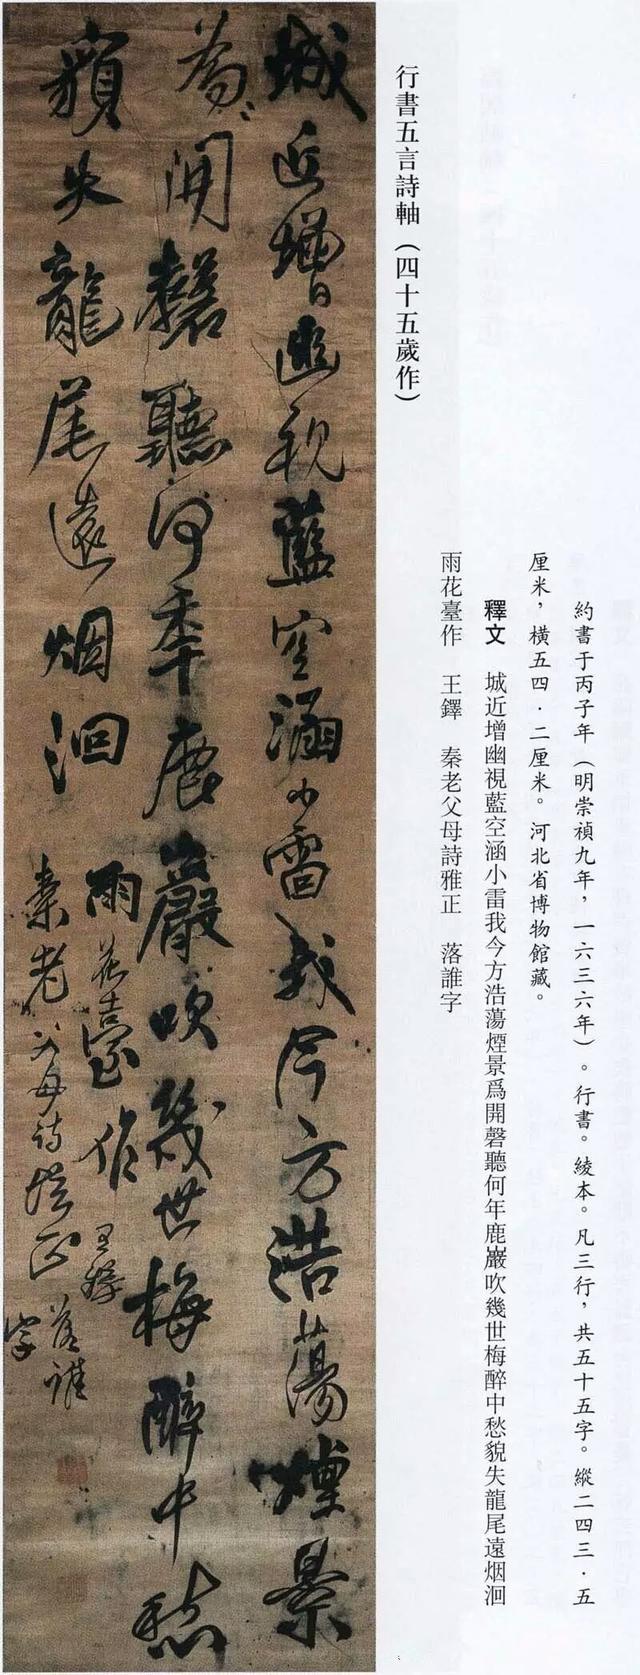 行書五言詩軸（四十五歲作）
約書于丙子年（明崇禎九年，一六三六年）。行書。綾本。凡三行，共五十五字。縱二四三·五
厘米，橫五四·二厘米。河北省博物館藏。
釋文　城近增幽視藍空涵小雷我今方浩蕩煙景爲開磬聽何年鹿巖吹幾世梅醉中愁貌失龍尾遠烟洄
雨花臺作　王鐸　秦老父母詩雅正　落誰字
城近增幽視藍空涵小雷我今方浩蕩煙景
爲開磬聽何年鹿巖吹幾世梅醉中愁
貌失龍尾遠烟洄
雨花臺作　王鐸
秦老父母詩雅正　落誰
字